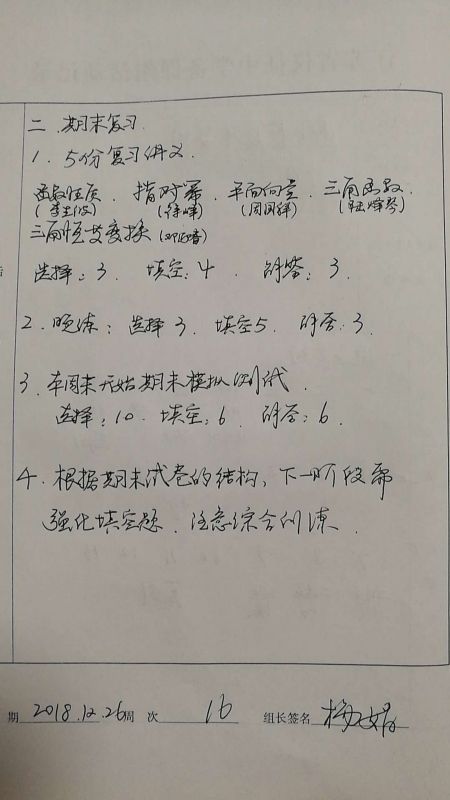 二 期末复习.
1. 5份复习讲义.
函数性质. 指对幂. 平面向量. 三角函数.
三角恒等变换
选择: 3. 填空: 4. 解答: 3.
2. 晚练: 选择 3. 填空5. 解答: 3.
3. 本周末开始期末模拟测试.
选择: 10. 填空: 6. 解答: 6.
4. 根据期末试卷的结构, 下一阶段需
强化填空题. 注意综合训练.
期 2018.12.26 周 次 16 组长签名